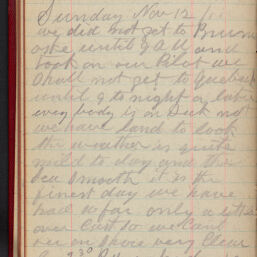 Sunday Nov 12
we did not get to
until 9 A M and
took on our Pilot we
shall not get to Quebec
until 9 to night or later
every body is on Deck not
we have land to look
the weather is quite
mild to day and the
Sea Smooth it is the
finest day we have
had so far only a little
over Cast so we Cant
see on Shore very Clear